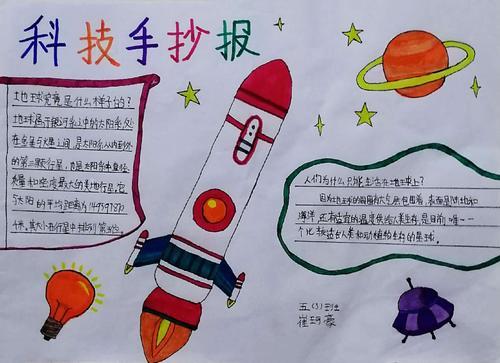 科技手抄报
地球究竟是什么样子的？
地球属于银河系之中的太阳系，处
在金星与火星之间，是太阳系从内到外
的第三颗行星，也是太阳系中直径、
质量和密度最大的类地行星。它
与太阳的平均距离为149597870
千米，其大小在行星中排列第五位
人们为什么只能生活在地球上？
因为地球的周围有大气层包围着，表面是陆地和
海洋，还有适宜的温度供给人类生存，是目前唯一一
个比较适合人类和动植物生存的星球。
五（3）班
崔 豪